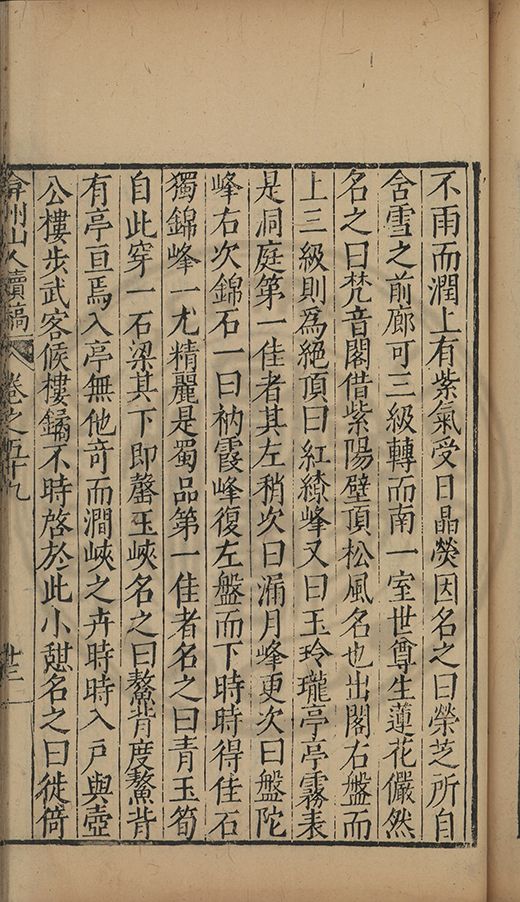 不雨而潤上有紫氣受日晶熒因名之曰榮芝所自
舍雪之前廊可三級轉而南一室世尊生蓮花儼然
名之曰梵音閣借紫陽壁頂松風名也出閣右盤而
上三級則爲絕頂曰紅繚峰又曰玉玲瓏亭亭霧表
是洞庭第一佳者其左稍次曰漏月峰更次曰盤陀
峰右次錦石一曰衲霞峰復左盤而下時時得佳石
獨錦峰一尤精麗是蜀品第一佳者名之曰青玉筍
自此穿一石梁其下即罄玉峽名之曰鰲背度鰲背
有亭亘焉入亭無他竒而澗峽之卉時時入戶與壺
公樓步武客候樓鐍不時啓於此小憇名之曰徙倚
弇州山人續稿 卷之五十九 廿三